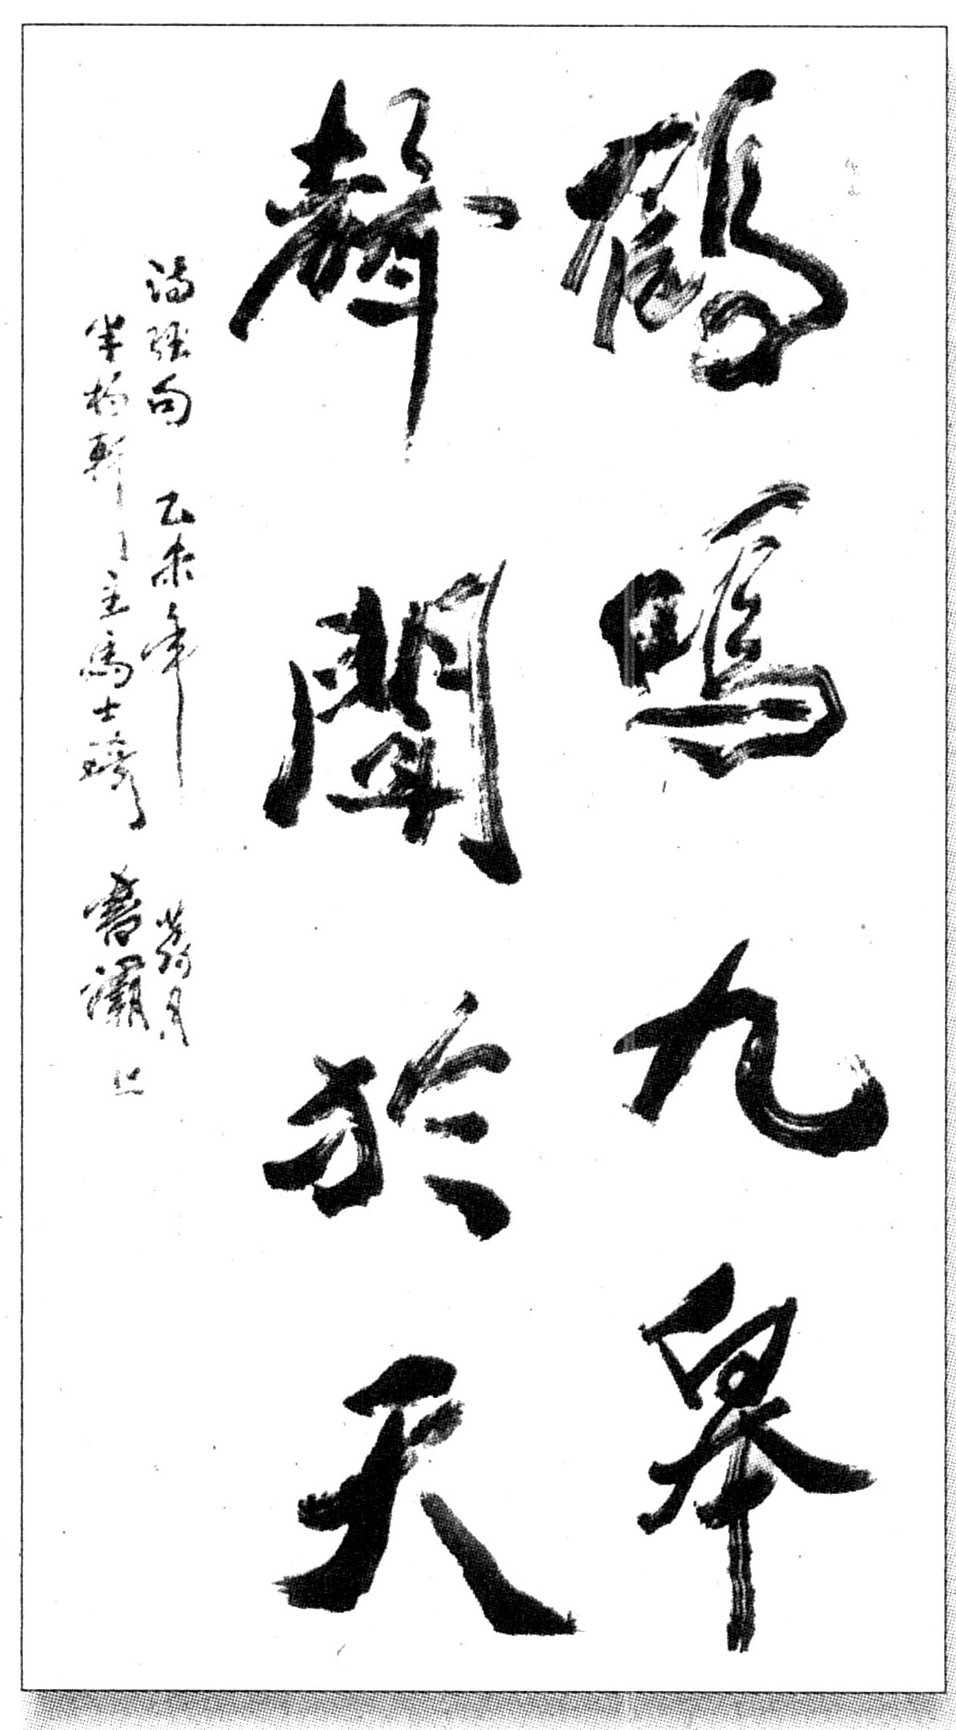 鶴鳴九皋
聲聞於天
詩經句 乙未年 荷月
半楊軒主馬士琦 書灞上